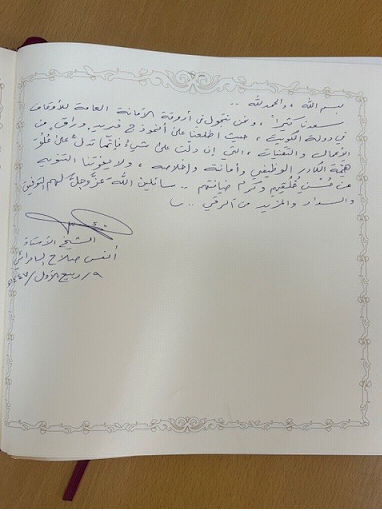 بسم الله ، والحمد لله ..
سعدنا كثيراً ، ونحن نتجول في أروقة الأمانة العامة للأوقاف
في دولة الكويت ، حيث اطلعنا على أنموذج فريد وراقٍ من
الأعمال والتقنيات ، التي إن دلّت على شيءٍ فإنما تدلّ على علوّ
همّة الكادر الوظيفي وأمانته وإخلاصه ، ولا يفوتنا التنويه
عن حُسن خُلُقهم وكرم ضيافتهم .. سائلين الله عزّ وجلّ لهم التوفيق
والسداد والمزيد من الرقي ..
الشيخ الأستاذ
أنس صلاح
٩/ ربيع الأول /